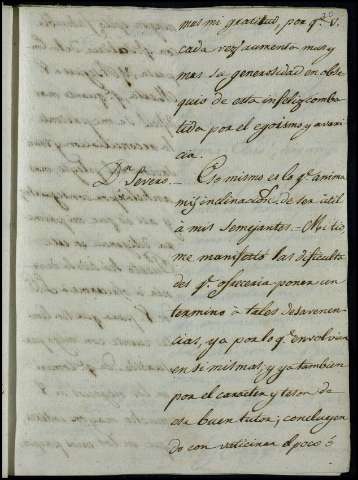 mas mi gratitud, por q.e V.
cada vez aumenta mas y
mas su generosidad en obse
quio de esta infeliz comba
tida por el egoismo y avari
cia.
Dn. Severo. — Eso mismo es lo q.e anima
mis inclinacion.s de ser util
á mis semejantes. — Mi tio
me manifestó las dificulta
des q.e ofreceria poner un
termino a tales desavenen
cias, ya por lo q.e envolvian
en si mismas, y ya tambien
por el caracter y teson de
ese buen tutor; concluyen
do con vaticinar el poco ó